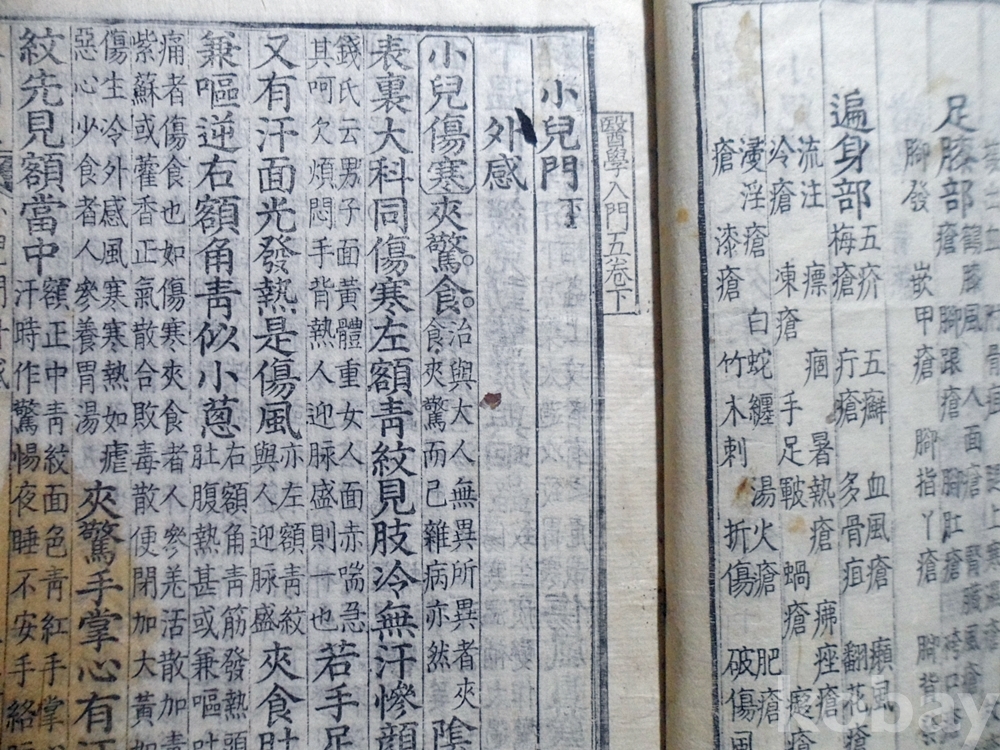 足腠部
瘡
鶴膝風 人面瘡 腎臟風瘡
腳跟瘡 胸肛瘡 袴口
腳發 嵌甲瘡 腳指丫瘡 腳背
遍身部
五疥 五癬 血風瘡 癩風
梅瘡 疔瘡 多骨疽 翻花
流注 瘭 痼 暑熱瘡 痤瘡
冷瘡 凍瘡 手足皸 蝸瘡
漫淫瘡 白蛇纏 湯火瘡 肥瘡
瘡 漆瘡 竹木刺 折傷 破傷風
醫學入門五卷下
小兒門下
外感
小兒傷寒夾驚。食。
治與大人無異所異者夾
食夾驚而已雜病亦然
陰
表裏大科同傷寒左額靑紋見肢冷無汗慘顔
錢氏云男子面黃體重女人面赤喘急
其呵欠煩悶手背熱人迎脉盛則一也
若手足
又有汗面光發熱是傷風
亦左額靑紋
與人迎脉盛
夾食肚
兼嘔逆右額角靑似小蔥
右額角靑筋發熱頭
肚腹熱甚或兼嘔吐
痛者傷食也如傷寒夾食者人參羌活散加
紫蘇或藿香正氣散合敗毒散便閉加大黃如
傷生冷外感風寒寒熱如瘧
惡心少食者人參養胃湯
夾驚手掌心有汗
紋先見額當中
額正中靑紋面色靑紅手掌
汗時作驚惕夜睡不安手絡
kobay